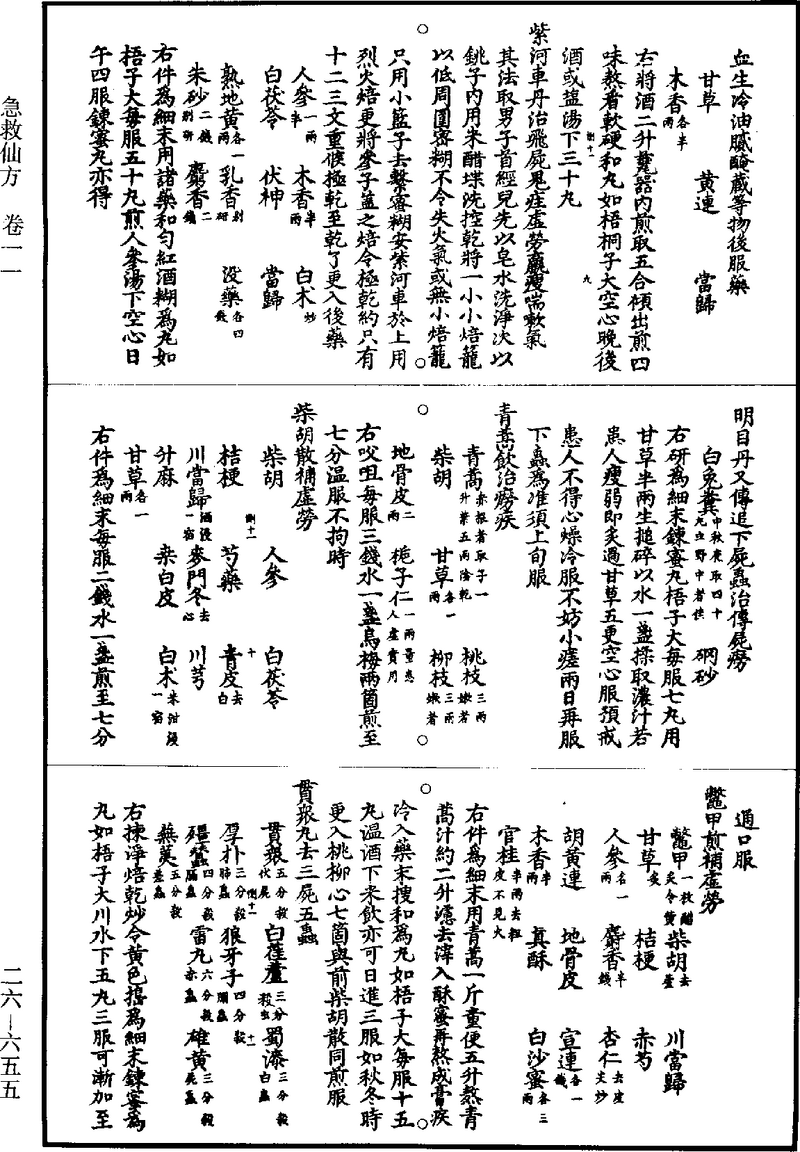 急救仙方　卷一一
血生冷油膩醃藏等物後服藥
甘草　黃連　當歸
木香各半兩
右將酒二升甆器內煎取五合傾出煎四
味熬看軟硬和丸如梧桐子大空心晚後
酒或鹽湯下三十九
紫河車丹治飛屍鬼疰虛勞羸瘦喘嗽氣
其法取男子首經兒先以皂水洗淨次以
銚子內用米醋洗控乾將一小小焙籠
以低周圍密糊不令失火氣或無小焙籠
只用小籃子去繫密糊安紫河車於上用
烈火焙更將麥子蓋之焙令極乾約只有
十二三文重候極乾至乾了更入後藥
人參一兩半　木香半兩　白朮炒
白茯苓　伏神　當歸
熟地黃各一兩　乳香別研　沒藥各四錢
朱砂二錢別研　麝香二錢
右件爲細末用諸藥和勻紅酒糊爲丸如
梧子大每服五十丸煎人參湯下空心日
午四服鍊蜜丸亦得
明目丹又傳追下屍蟲治傳屍癆
白兔糞中秋夜取四十九立野中者佳　硇砂
右研爲細末鍊蜜丸梧子大每服七丸用
甘草半兩生搥碎以水一盞揉取濃汁若
患人瘦弱即炙過甘草五更空心服預戒
患人不得心燥冷服不妨小瘥兩日再服
下蟲爲准須上旬服
青蒿飲治癆疾
青蒿赤根者取子一升葉五兩陰乾　桃枝三兩嫩者
柴胡　甘草各一兩　柳枝三兩嫩者
地骨皮二兩　梔子仁一兩量患人虛實用
右㕮咀每服三錢水一盞烏梅兩箇煎至
七分溫服不拘時
柴胡散補虛勞
柴胡　人參　白茯苓
桔梗　芍藥　青皮去白
川當歸酒浸一宿　麥門冬去心　川芎
升麻　桑白皮　白朮米泔浸一宿
甘草各一兩
右件爲細末每服二錢水一盞煎至七分
通口服
鼈甲煎補虛勞
鼈甲一枚醋炙令黃　柴胡去蘆　川當歸
甘草炙　桔梗　赤芍
人參各一兩　麝香半錢　杏仁去皮尖炒
胡黃連　地骨皮　宣連各一錢
木香半兩　真酥　白沙蜜各三兩
官桂半兩去粗皮不見火
右件爲細末用青蒿一斤童便五升熬青
蒿汁約二升濾去滓入酥蜜再熬成膏候
冷入藥末搜和爲丸如梧子大每服十五
丸溫酒下米飲亦可日進三服如秋冬時
更入桃柳心七箇與前柴胡散同煎服
貫眾丸去三屍五蟲
貫眾五分殺伏屍　白雚蘆三分殺蟲　蜀漆三分殺白蟲
厚朴三分殺肺蟲　狼牙子四分殺胃蟲
殭蠶四分殺膈蟲　雷丸六分殺赤蟲　雄黃三分殺屍蟲
蕪荑五分殺
右揀淨焙乾炒令黃色搗爲細末鍊蜜爲
丸如梧子大川水下五丸三服可漸加至
二六—六五五